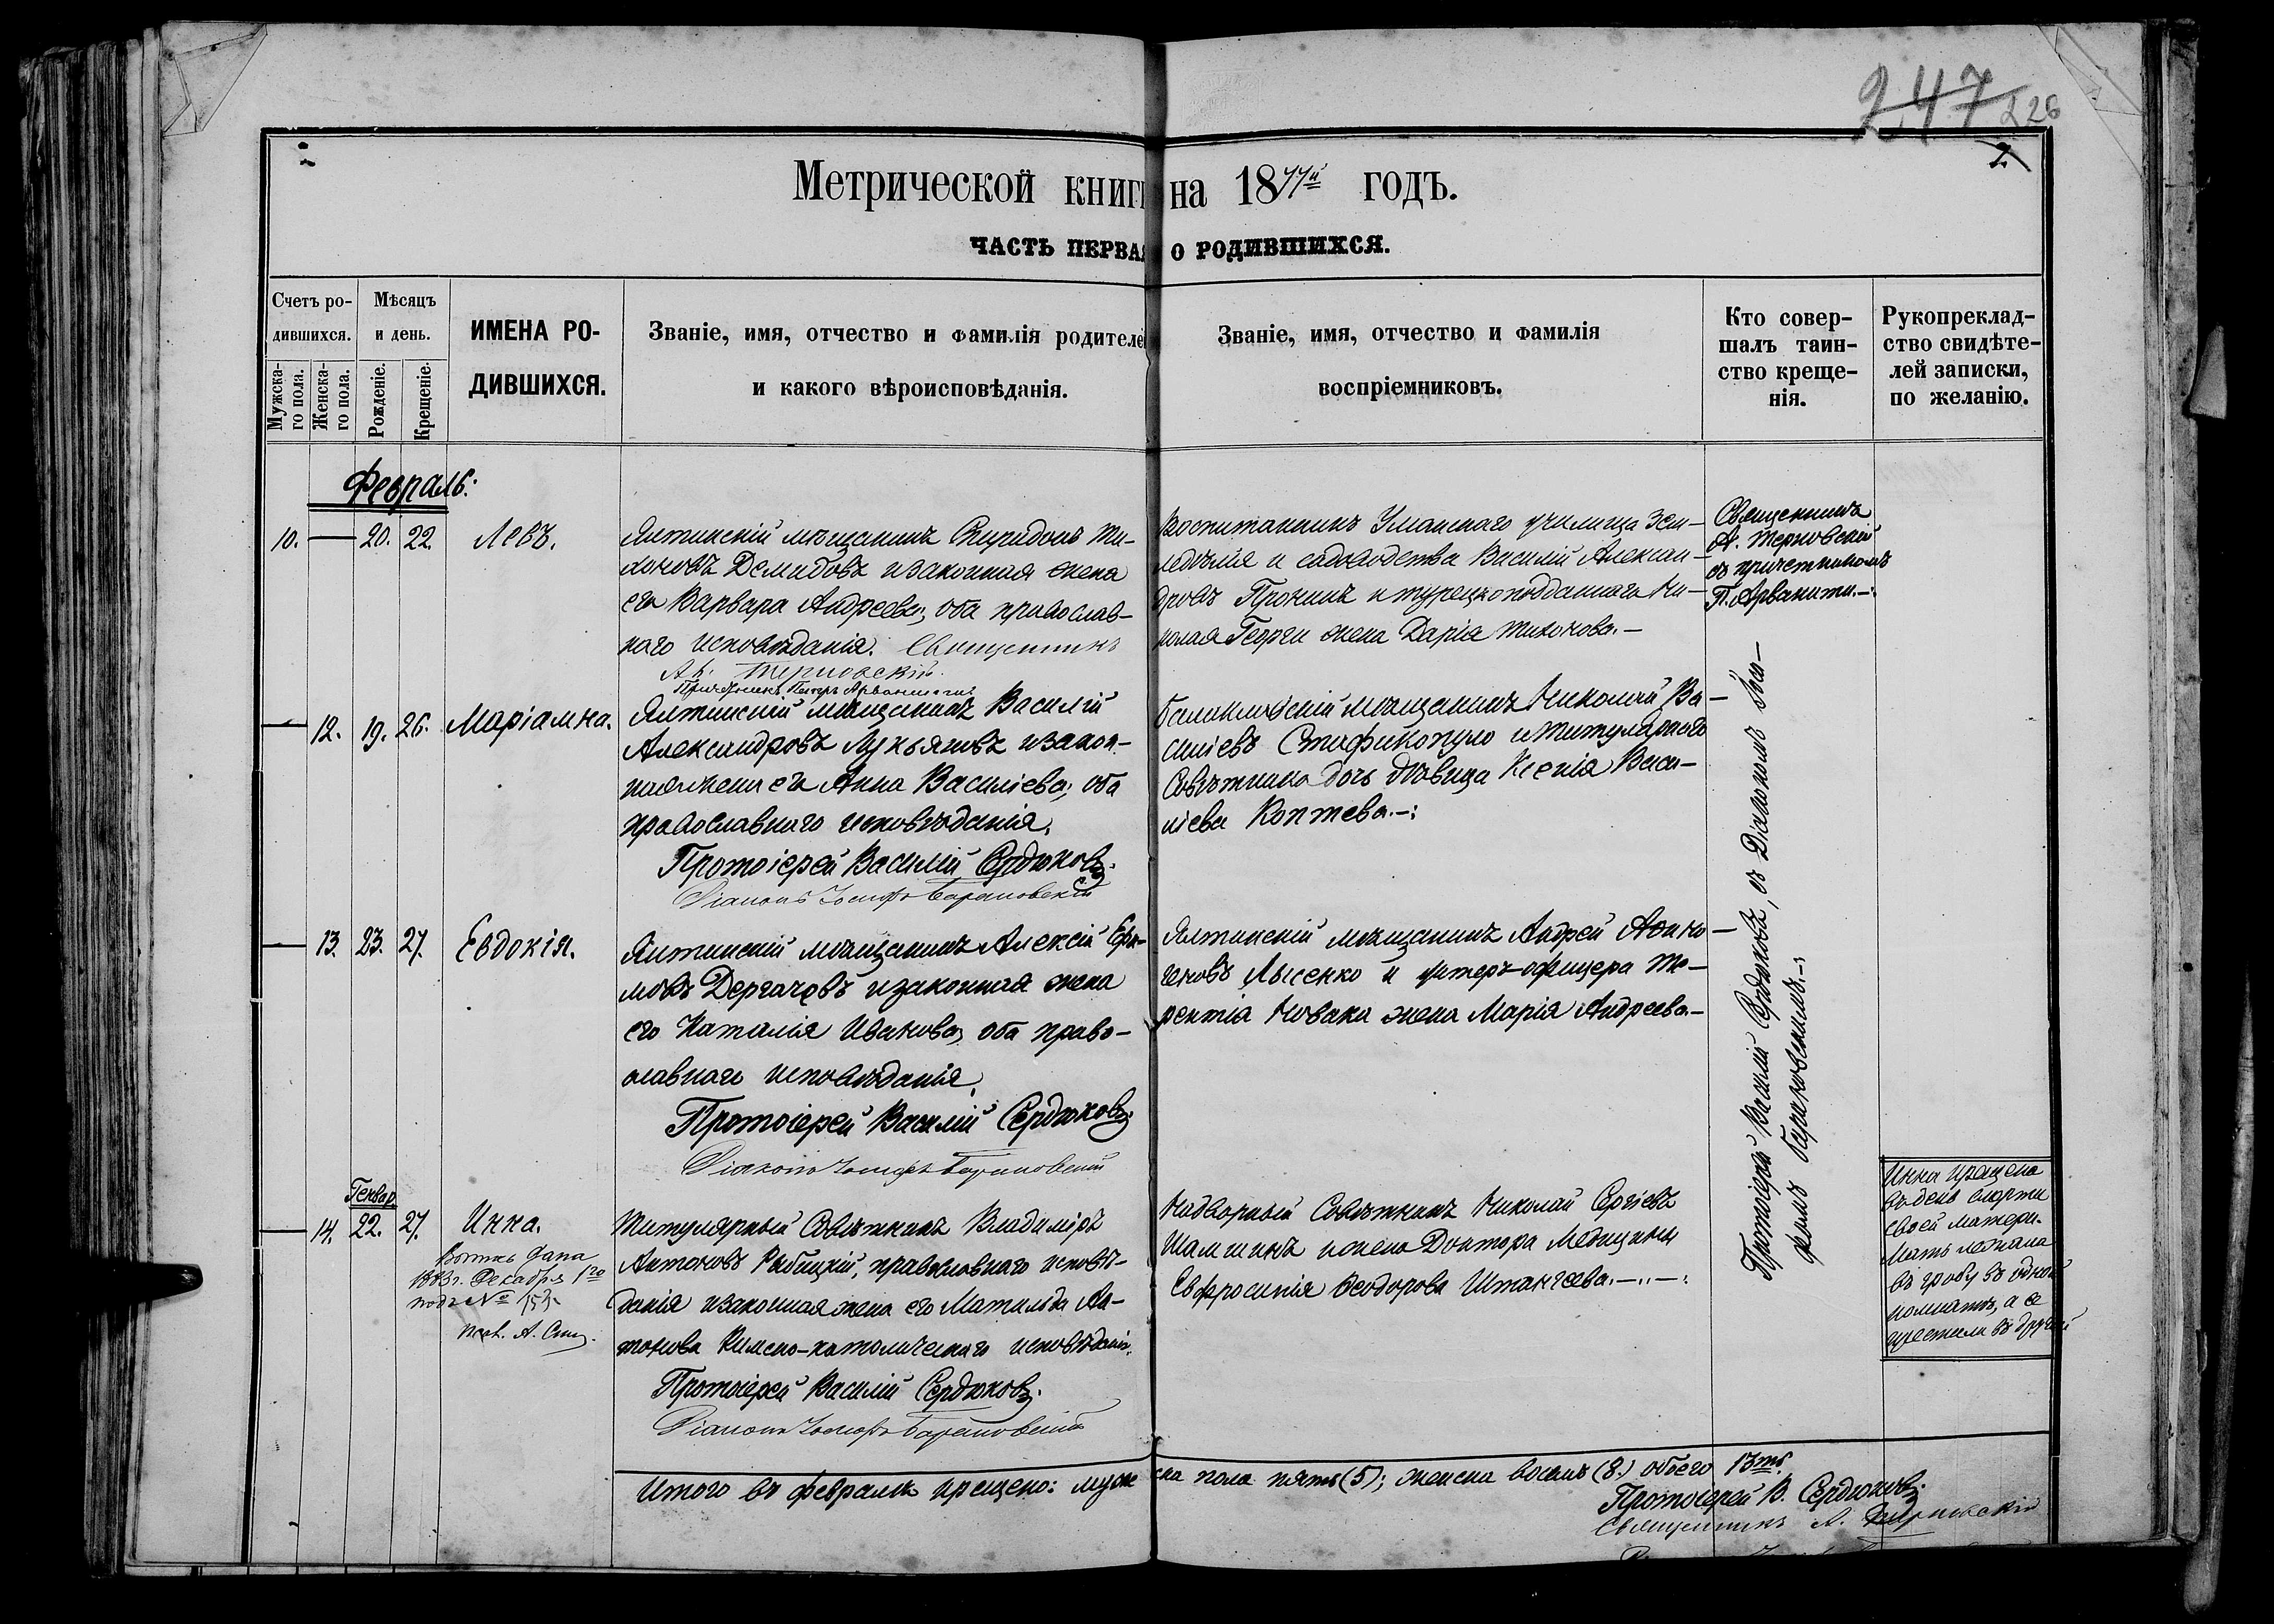 247 226
7.
Метрической книги на 1877й годъ.
ЧАСТЬ ПЕРВАЯ О РОДИВШИХСЯ.
Счетъ ро-
дившихся.
Мужска-
го пола.
Женска-
го пола.
Мѣсяцъ
и день.
Рожденіе.
Крещеніе.
ИМЕНА РО-
ДИВШИХСЯ.
Званіе, имя, отчество и фамилія родителе
и какого вѣроисповѣданія.
Званіе, имя, отчество и фамилія
воспріемниковъ.
Кто совер-
шалъ таин-
ство креще-
нія.
Рукоприклад-
ство свидѣте-
лей записки,
по желанію.
Февраль:
10. — 20. 22. Левъ.
Ялтинскій мѣщанинъ Спиридонъ Ти-
хоновъ Демидовъ и законная жена
его Варвара Андреева; оба православ-
наго исповѣданія. Священникъ
А. Терновскій.
Причетникъ Петръ Арванити
Воспитанникъ Уманскаго училища Зем-
ледѣлія и садоводства Василій Алексан-
дровъ Пронинъ и турецкоподданнаго Ни-
колая Георги жена Дарія Тихонова.—
Священникъ
А. Терновскій
съ причетникомъ
П. Арванити.—:
— 12. 19. 26. Маріамна.
Ялтинскій мѣщанинъ Василій
Александровъ Лукьяновъ и закон-
ная жена его Анна Василіева; оба
православнаго исповѣданія.
Протоіерей Василій Сердюковъ.
Діаконъ Іосифъ Барановскій
Балаклавскій мѣщанинъ Николай Ва-
силіевъ Стафикопуло и Титулярнаго
Совѣтника дочь дѣвица Ксенія Васи-
ліева Коптева.—:
— 13. 23. 27. Евдокія.
Ялтинскій мѣщанинъ Алексій Ефи-
мовъ Дергачевъ и законная жена
его Наталія Иванова, оба право-
славнаго исповѣданія.
Протоіерей Василій Сердюковъ
Діаконъ Іосифъ Барановскій
Ялтинскій мѣщанинъ Андрей
Лысенко и унтеръ-офицера Те-
рентія Новака жена Марія Андреева.—
Протоіерей Василій Сердюковъ, съ Діакономъ Іо-
сифомъ Барановскимъ.—:
Генвар.
— 14. 22. 27. Инна.
дана
1883 г. Декабря 1го
подъ №
А.
Титулярный Совѣтникъ Владиміръ
Антоновъ Рыбицкій, православнаго исповѣ-
данія и законная жена его Матильда Ан-
тонова Римско-католическаго исповѣданія.
Протоіерей Василій Сердюковъ.
Діаконъ Іосифъ Барановскій
Надворный Совѣтникъ Николай Сергіевъ
Шамшинъ и жена Доктора Медицины
Евфросинія Ѳеодорова Штангеева.—..—.
Инна крещена
въ день смерти
своей матери.
Мать лежала
въ гробу въ одной
комнатѣ, а ее
крестили въ другой
Итого въ февралѣ крещено: муж ска пола пять (5); женска восемь (8.) обоего 13ть.
Протоіерей В. Сердюковъ.
Священникъ А. Терновскій